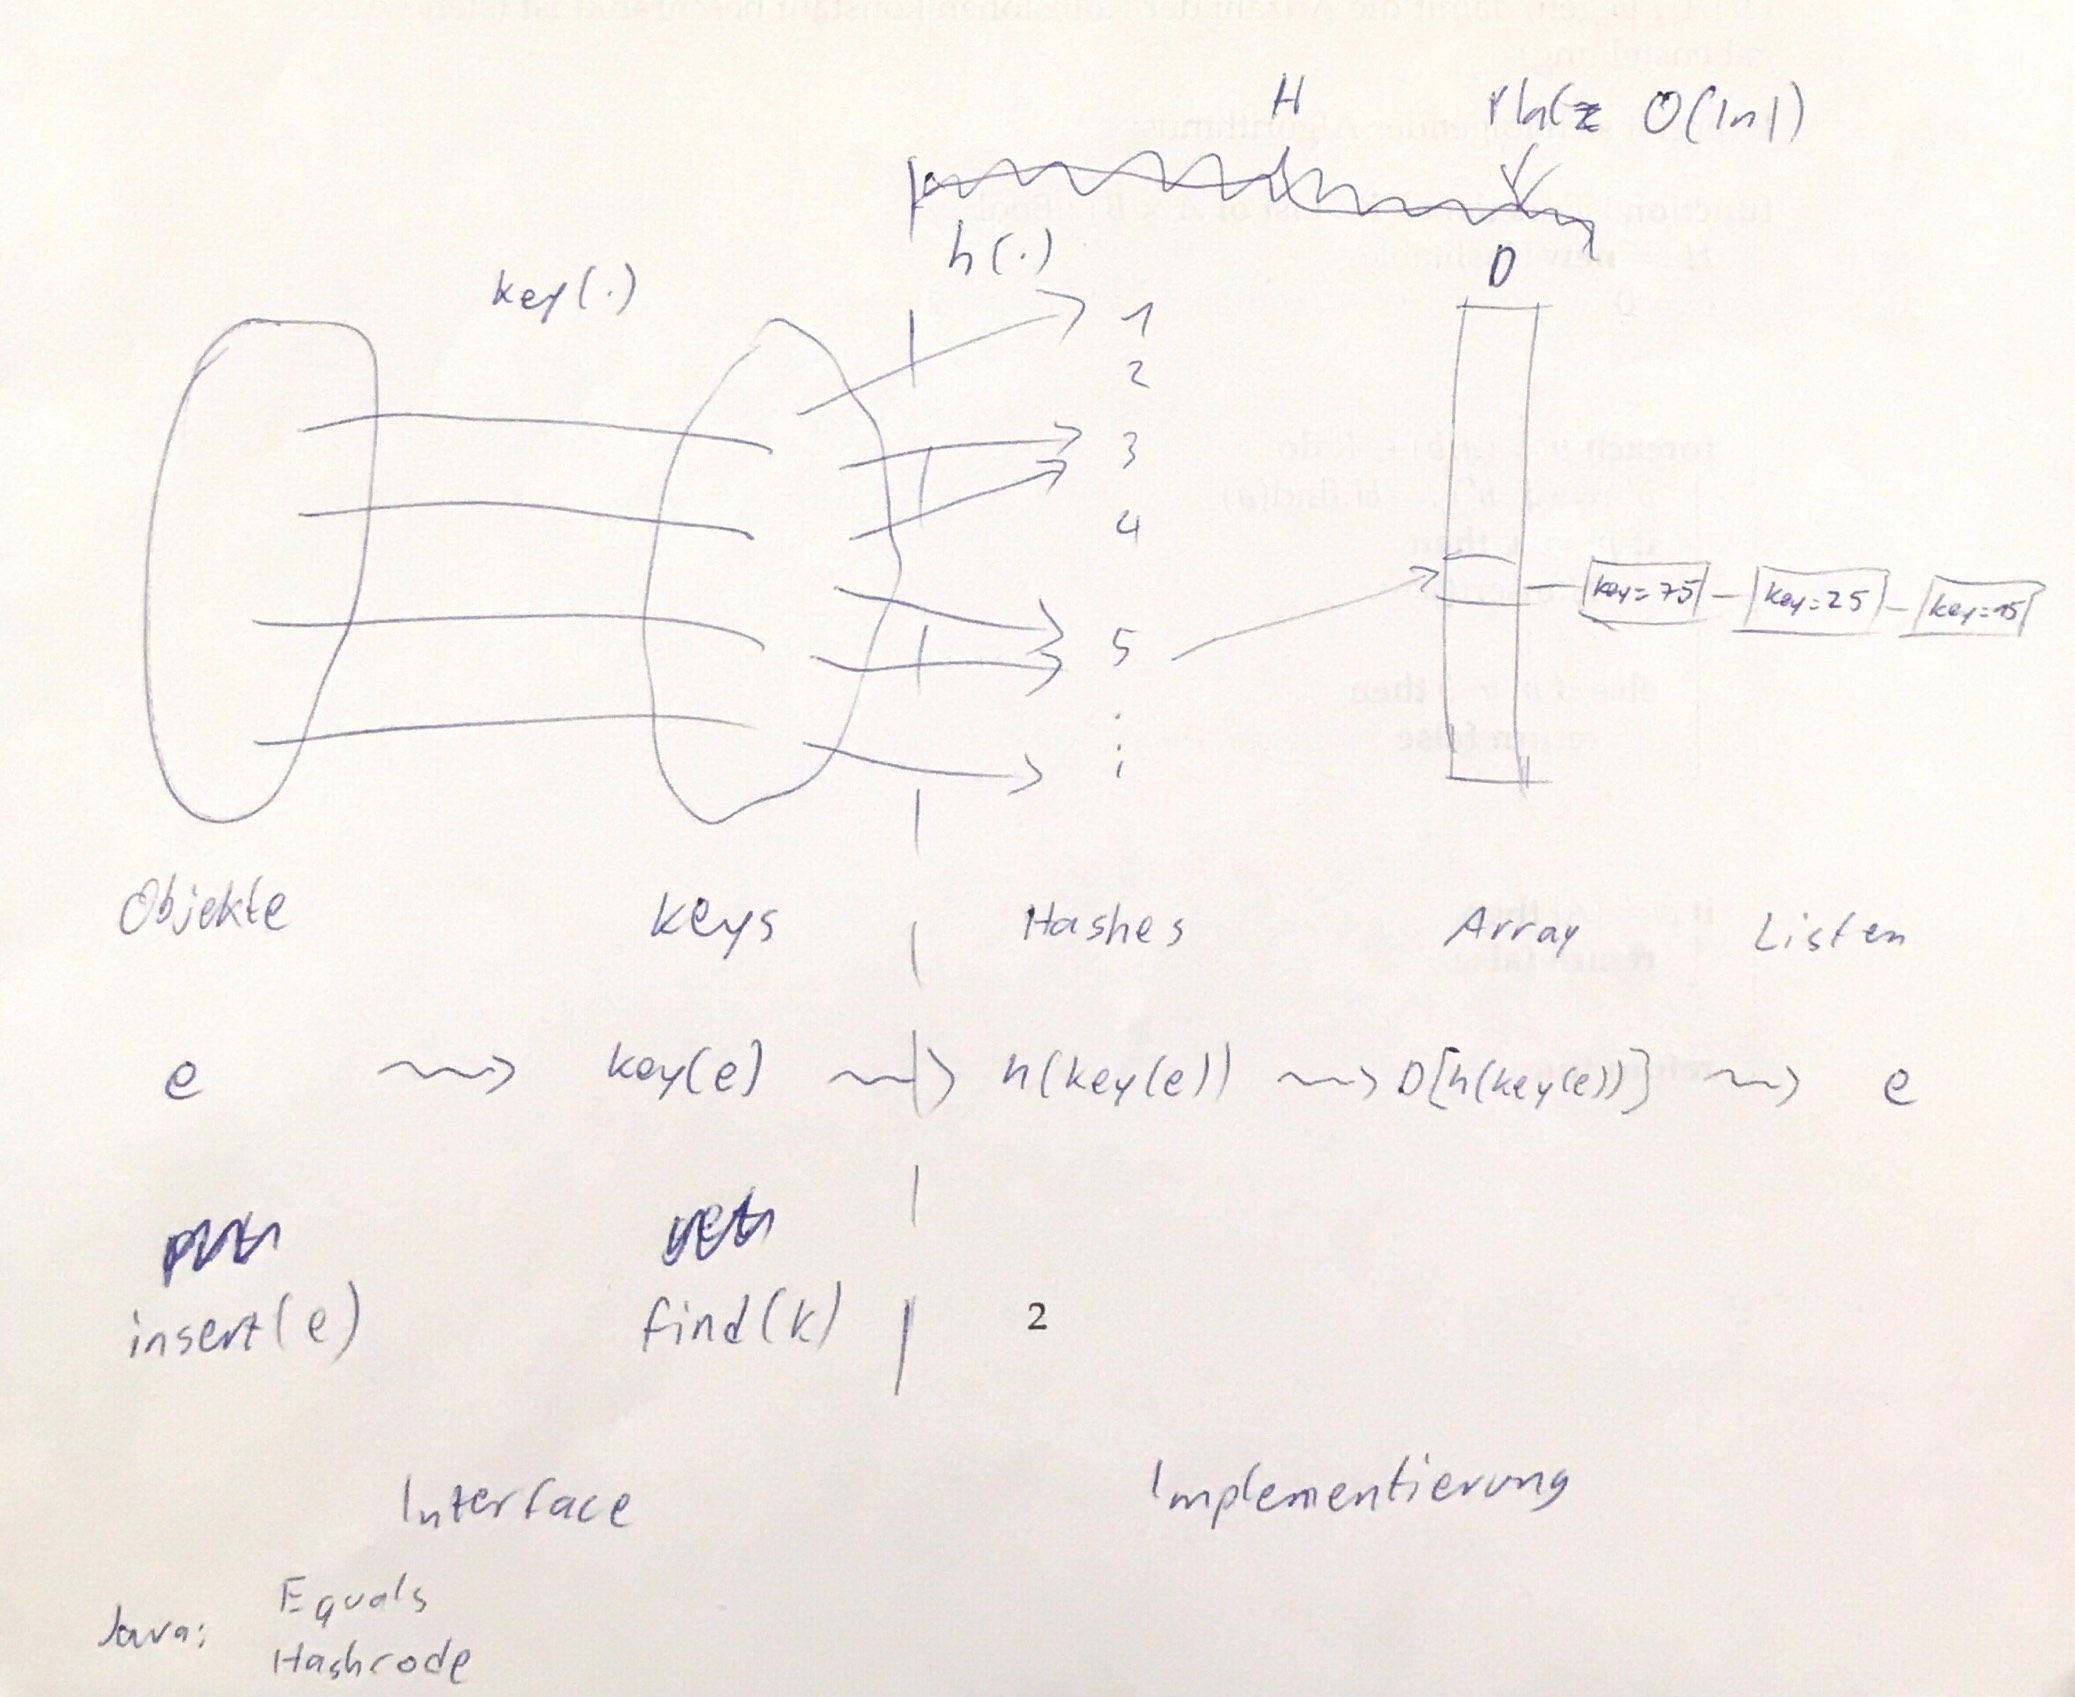 H
O(|n|)
h(.)
D
key(.)
1
2
3
4
5
key=75
key=25
key=15
Objekte
Keys
Hashes
Array
Listen
e
key(e)
h(key(e))
D[h(key(e))]
e
insert(e)
find(k)
2
Interface
Implementierung
Java:
Equals
Hashcode